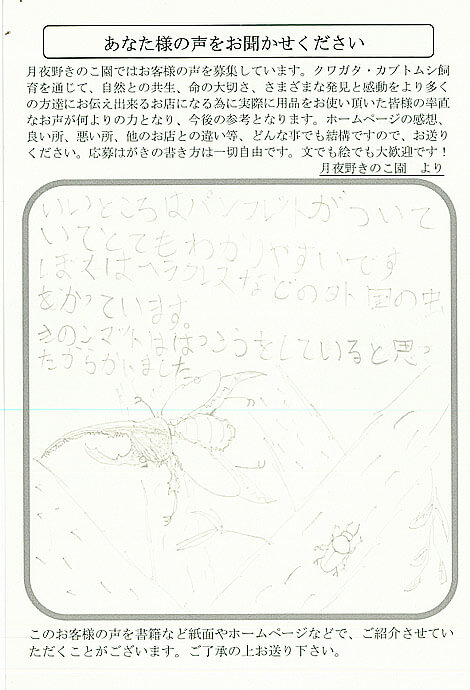 あなた様の声をお聞かせください
月夜野きのこ園ではお客様の声を募集しています。クワガタ・カブトムシ飼
育を通じて、自然との共生、命の大切さ、さまざまな発見と感動をより多く
の方達にお伝え出来るお店になる為に実際に用品をお使い頂いた皆様の率直
なお声が何よりの力となり、今後の参考となります。ホームページの感想、
良い所、悪い所、他のお店との違い等、どんな事でも結構ですので、お送り
ください。応募はがきの書き方は一切自由です。文でも絵でも大歓迎です！
月夜野きのこ園　より
いいところはパンフレットがついて
いてとてもわかりやすいです
ぼくはヘラクレスなどの外国の虫
をかっています。
きのこマットははっこうをしていると思っ
たからかいました。
このお客様の声を書籍など紙面やホームページなどで、ご紹介させてい
ただくことがございます。ご了承の上お送り下さい。